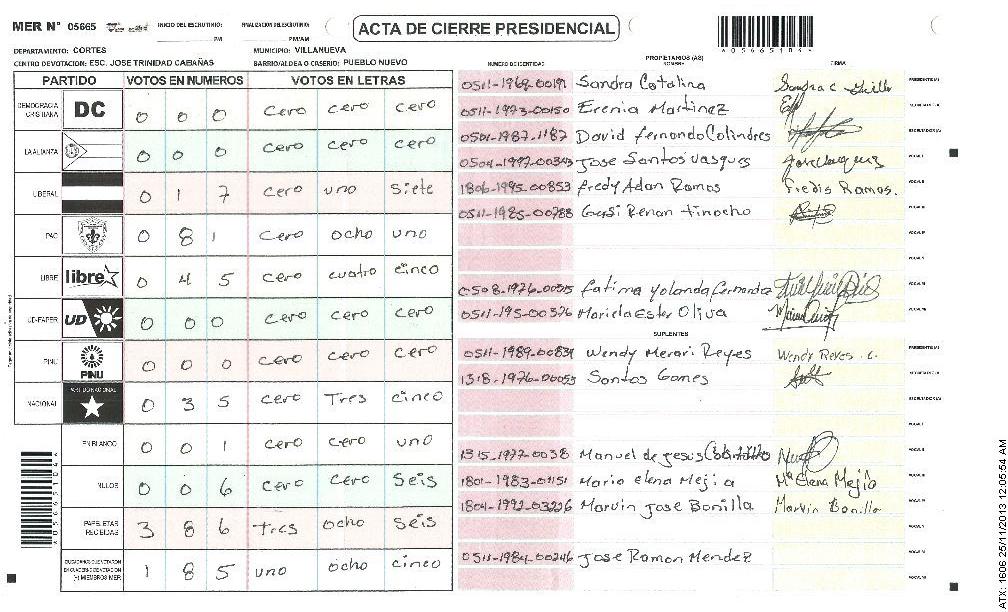 MER N° 05665 INICIO DEL ESCRUTINIO: PM FINALIZACION DEL ESCRUTINIO: PM/AM
ACTA DE CIERRE PRESIDENCIAL
DEPARTAMENTO: CORTES MUNICIPIO: VILLANUEVA
CENTRO DE VOTACION: ESC. JOSE TRINIDAD CABAÑAS BARRIO/ALDEA O CASERIO: PUEBLO NUEVO
PARTIDO VOTOS EN NUMEROS VOTOS EN LETRAS
DEMOCRACIA CRISTIANA DC 0 0 0 cero cero cero
LA ALIANZA 0 0 0 cero cero cero
LIBERAL 0 1 7 cero uno siete
PAC 0 8 1 cero ocho uno
LIBRE libre 0 4 5 cero cuatro cinco
UD-FAPER UD 0 0 0 cero cero cero
PINU PINU 0 0 0 cero cero cero
NACIONAL PARTIDO NACIONAL 0 3 5 cero Tres cinco
EN BLANCO 0 0 1 cero cero uno
NULOS 0 0 6 cero cero seis
PAPELETAS RECIBIDAS 3 8 6 Tres ocho seis
CIUDADANOS QUE VOTARON EN CUADERNO DE VOTACION (+) MIEMBROS MER 1 8 5 uno ocho cinco
NUMERO DE IDENTIDAD PROPIETARIOS (AS) NOMBRE FIRMA
0511-1969-00191 Sandra Catalina PRESIDENTE (A)
0511-1973-00150 Erenia Martinez SECRETARIO (A)
0501-1987-1187 David fernando Colindres ESCRUTADOR (A)
0504-1997-00343 Jose Santos Vasques VOCAL I
1806-1995-00853 fredy Adan Ramos Fredis Ramos.
0511-1985-00788 Gersi Renan tinocho
0508-1976-00315 fatima yolanda fernandez
0511-195-00376 Mariela Ester Oliva
SUPLENTES
0511-1989-00834 Wendy Merari Reyes Wendy Reyes . C. PRESIDENTE (A)
1318-1976-00055 Santos Gomes SECRETARIO (A)
ESCRUTADOR (A)
1315-1977-0038 Manuel de jesus
1801-1983-01151 Maria elena Mejia Mª Elena Mejia
1804-1992-03226 Marvin Jose Bonilla Marvin Bonilla
0511-1984-00246 Jose Ramon Mendez
*05665104*
ATX: 1606 25/11/2013 12:05:54 AM